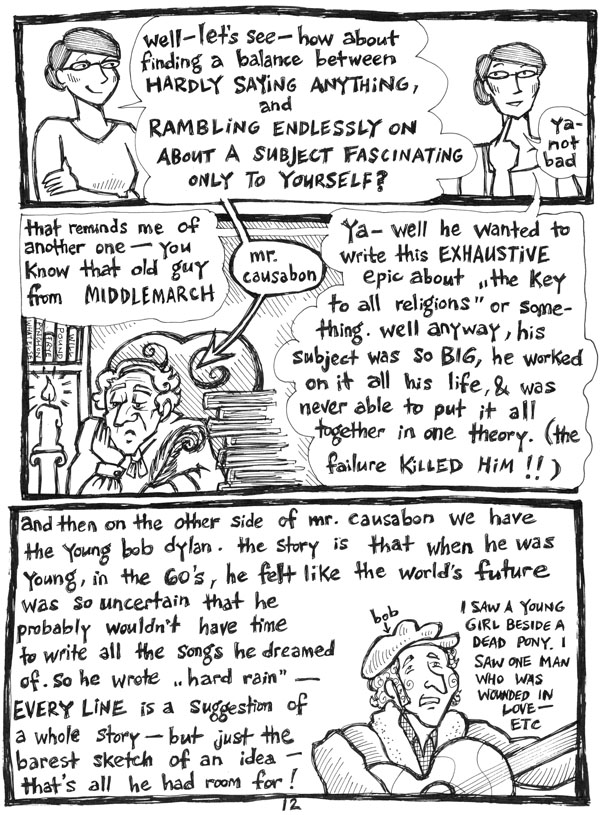 well–let's see–how about
finding a balance between
HARDLY SAYING ANYTHING,
and
RAMBLING ENDLESSLY ON
ABOUT A SUBJECT FASCINATING
ONLY TO YOURSELF?
Ya–
not
bad
that reminds me of
another one — you
know that old guy
from MIDDLEMARCH
mr.
causabon
Ya– well he wanted to
write this EXHAUSTIVE
epic about „the key
to all religions" or some-
thing. well anyway, his
subject was so BIG, he worked
on it all his life, & was
never able to put it all
together in one theory. (the
failure KILLED HIM !!)
POUND
FRYE
and then on the other side of mr. causabon we have
the young bob dylan. the story is that when he was
young, in the 60's, he felt like the world's future
was so uncertain that he
probably wouldn't have time
to write all the songs he dreamed
of. so he wrote „hard rain" —
EVERY LINE is a suggestion of
a whole story – but just the
barest sketch of an idea –
that's all he had room for!
bob
I SAW A YOUNG
GIRL BESIDE A
DEAD PONY. I
SAW ONE MAN
WHO WAS
WOUNDED IN
LOVE—
ETC
12